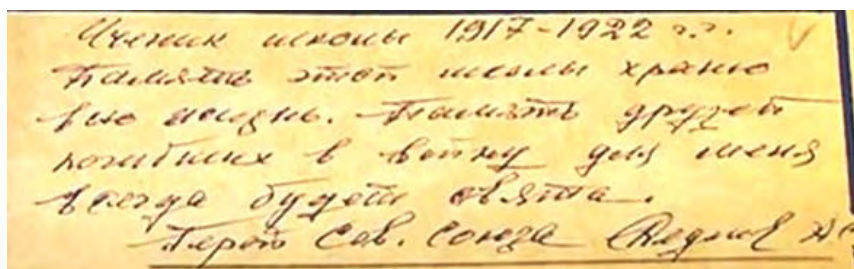 Ученик школы 1917-1922 г.г.
Память этой школы храню
всю жизнь. Память друзей
погибших в войну для меня
всегда будет свята.
Герой Сов. Союза